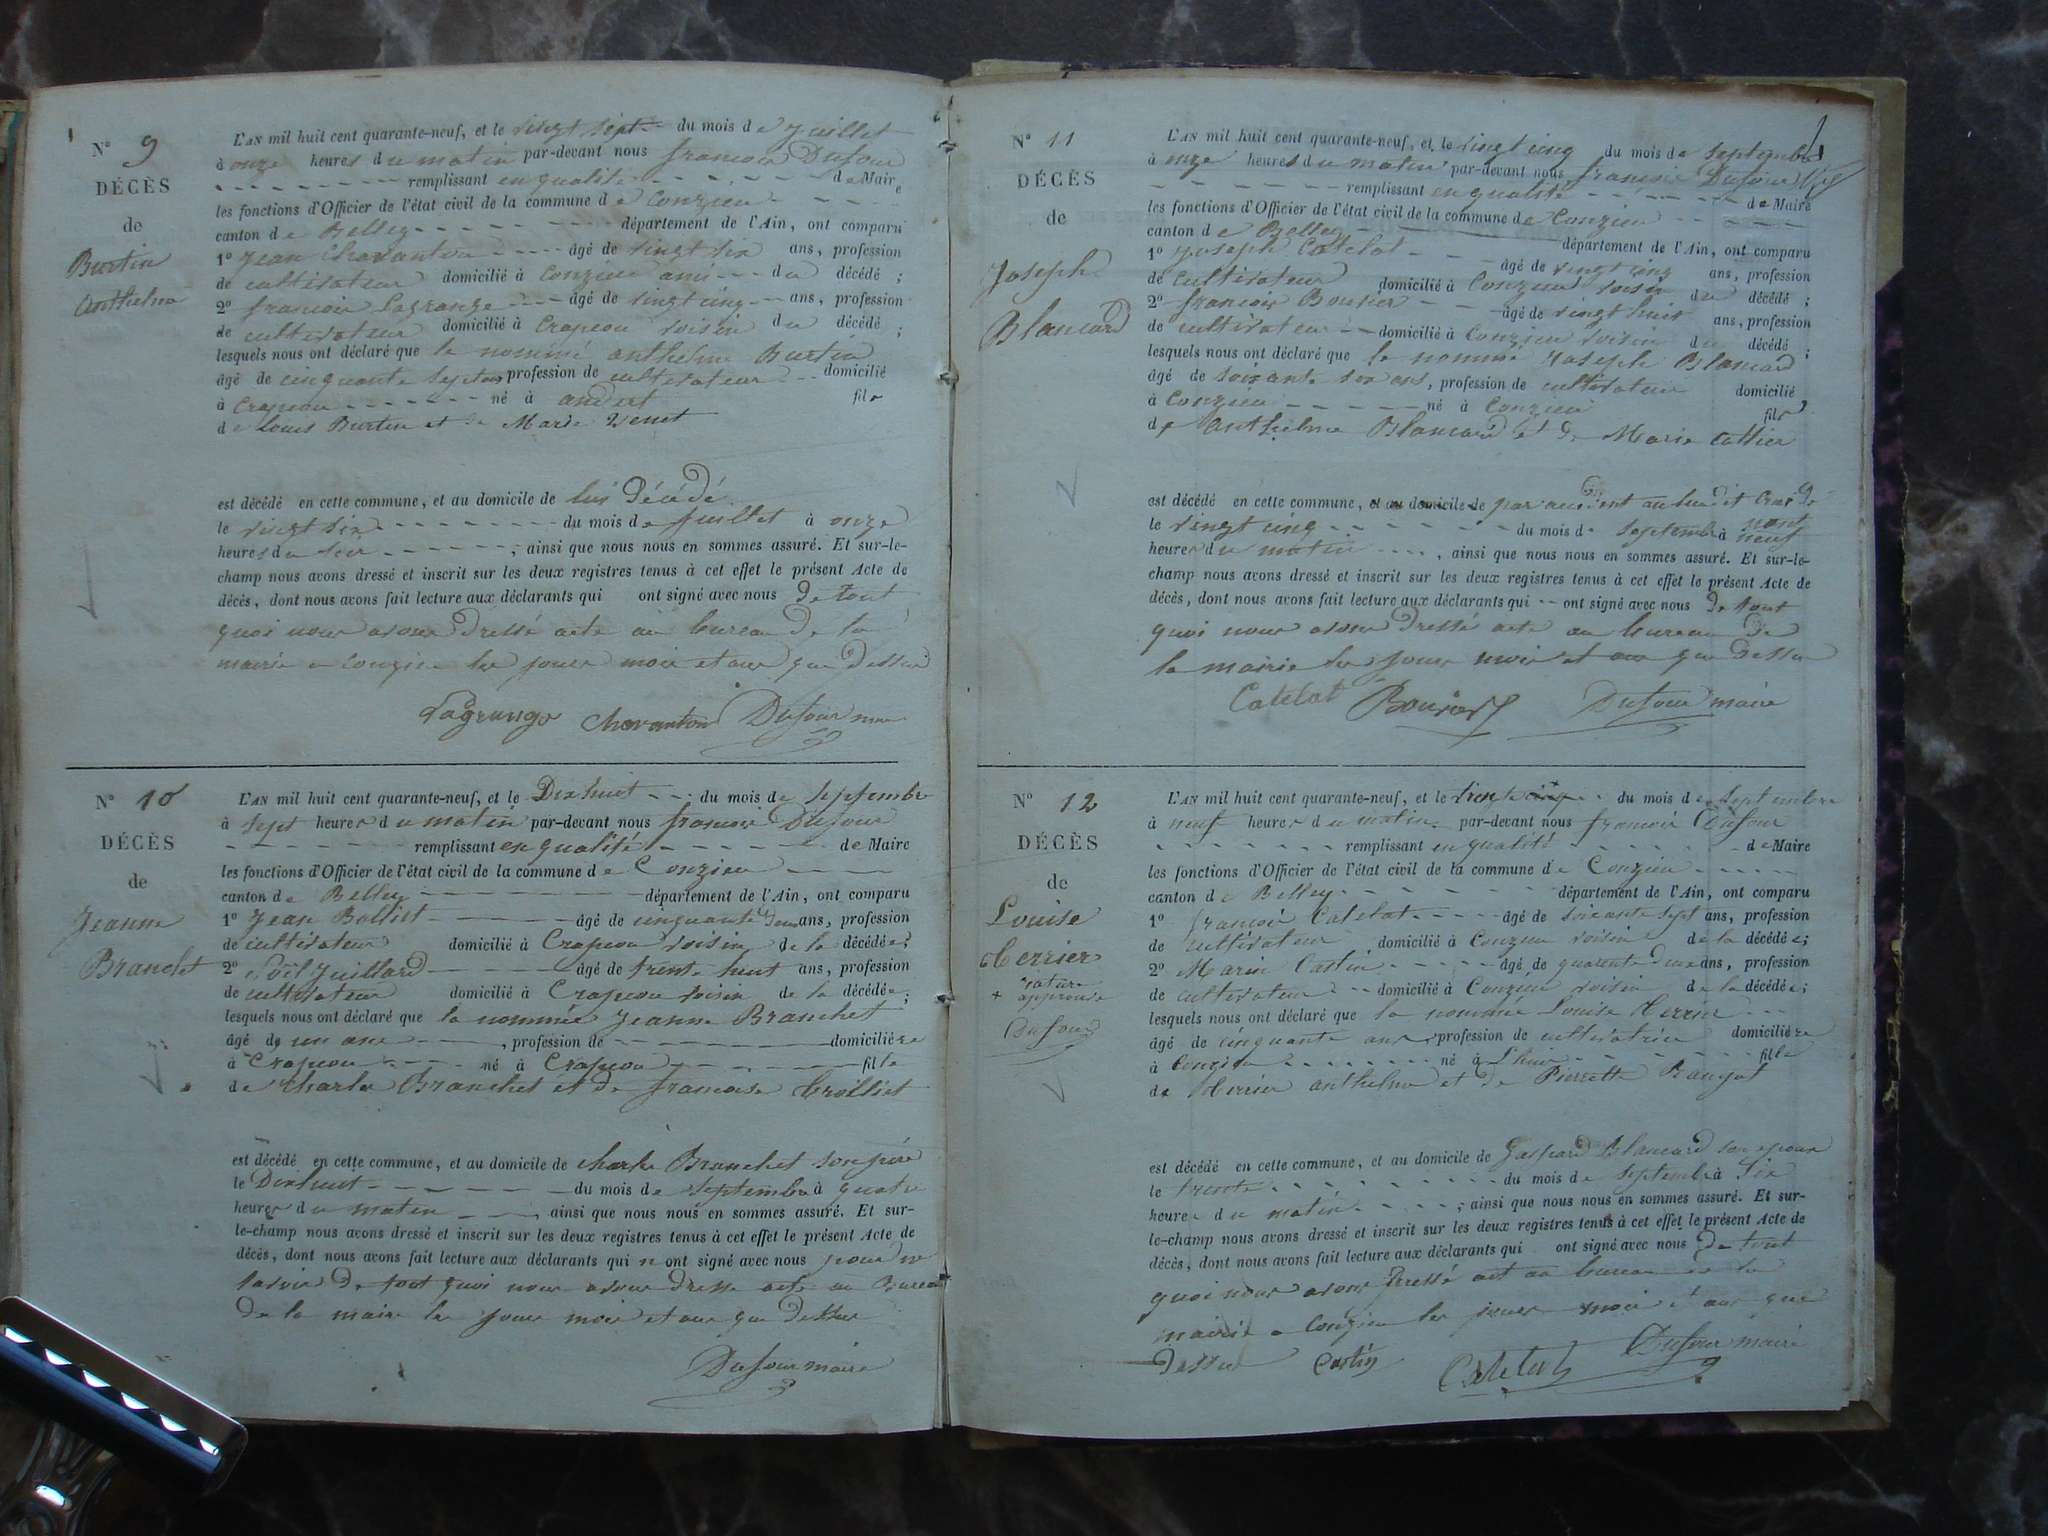 N° 9
DÉCÈS
de
Burtin
Anthelme
L'AN mil huit cent quarante-neuf, et le vingt sept du mois de Juillet
à onze heures du matin par-devant nous francois Dufour
remplissant en qualité de Maire
les fonctions d'Officier de l'état civil de la commune de Conzieu
canton de Belley département de l'Ain, ont comparu
1° Jean Chavanton âgé de vingt six ans, profession
de cultivateur domicilié à Conzieu ami du décédé ;
2° francois Lagrange âgé de vingt cinq ans, profession
de cultivateur domicilié à Crapeou voisin du décédé ;
lesquels nous ont déclaré que le nommé anthelme Burtin
âgé de cinquante sept ans profession de cultivateur domicilié
à Crapeou né à andert fils
de Louis Burtin et de Marie
est décédé en cette commune, et au domicile de lui décédé
le vingt six du mois de Juillet à onze
heures du soir , ainsi que nous nous en sommes assuré. Et sur-le-
champ nous avons dressé et inscrit sur les deux registres tenus à cet effet le présent Acte de
décès, dont nous avons fait lecture aux déclarants qui ont signé avec nous De tout
quoi nous avons Dressé acte au bureau De la
mairie a conzieu les jours mois et an que Dessus
Lagrange Chavanton Dufour maire
N° 10
DÉCÈS
de
Jeanne
Branchet
L'AN mil huit cent quarante-neuf, et le Dixhuit du mois de Septembre
à sept heures du matin par-devant nous francois Dufour
remplissant en qualité de Maire
les fonctions d'Officier de l'état civil de la commune de Conzieu
canton de Belley département de l'Ain, ont comparu
1° Jean Bolliet âgé de cinquante deux ans, profession
de cultivateur domicilié à Crapeou voisin de la décédée;
2° Noël Juillard âgé de trente huit ans, profession
de cultivateur domicilié à Crapeou voisin de la décédée;
lesquels nous ont déclaré que la nommée Jeanne Branchet
âgé de un ans , profession de domiciliée
à Crapeou né à Crapeou fille
de Charle Branchet et de francoise trolliet
est décédé en cette commune, et au domicile de charle Branchet son père
le Dixhuit du mois de septembre à quatre
heures du matin ainsi que nous nous en sommes assuré. Et sur-
le-champ nous avons dressé et inscrit sur les deux registres tenus à cet effet le présent Acte de
décès, dont nous avons fait lecture aux déclarants qui n ont signé avec nous pour ne
savoir De tout quoi nous avons dressé acte au Bureau
De la mairie les jours mois et an que Dessus
Dufour maire
N° 11
DÉCÈS
de
Joseph
Blancard
L'AN mil huit cent quarante-neuf, et le vingt cinq du mois de septembre
à onze heures du matin par-devant nous francois Dufour
remplissant en qualité de Maire
les fonctions d'Officier de l'état civil de la commune de Conzieu
canton de Belley département de l'Ain, ont comparu
1° Joseph Catelat âgé de vingt cinq ans, profession
de cultivateur domicilié à Conzieu voisin du décédé ;
2° francois Bouvier âgé de vingt huit ans, profession
de cultivateur domicilié à Conzieu voisin du décédé ;
lesquels nous ont déclaré que le nommé Joseph Blancard
âgé de soixante six ans, profession de cultivateur domicilié
à Conzieu né à Conzieu fils
de Anthelme Blancard et de Marie
est décédé en cette commune, et au domicile de par accident au lieu dit
le vingt cinq du mois de septembre à neuf
heures du matin , ainsi que nous nous en sommes assuré. Et sur-le-
champ nous avons dressé et inscrit sur les deux registres tenus à cet effet le présent Acte de
décès, dont nous avons fait lecture aux déclarants qui ont signé avec nous De tout
quoi nous avons Dressé acte au bureau De
la mairie les jours mois et an que Dessus
Catelat Bouvier Dufour maire
N° 12
DÉCÈS
de
Louise
herrier
+ rature
approuvé
Dufour
L'AN mil huit cent quarante-neuf, et le du mois de septembre
à neuf heures du matin par-devant nous francois Dufour
remplissant en qualité de Maire
les fonctions d'Officier de l'état civil de la commune de Conzieu
canton de Belley département de l'Ain, ont comparu
1° francois Catelat âgé de soixante sept ans, profession
de cultivateur domicilié à Conzieu voisin de la décédée;
2° Marin Castin âgé de quarente deux ans, profession
de cultivateur domicilié à Conzieu voisin de la décédée;
lesquels nous ont déclaré que la nommée Louise herrier
âgé de cinquante ans profession de cultivatrice domiciliée
à Conzieu né à fille
de herrier anthelme et de Pierrette
est décédé en cette commune, et au domicile de Gaspard Blancard son epoux
le trente du mois de septembre à six
heures du matin ; ainsi que nous nous en sommes assuré. Et sur-
le-champ nous avons dressé et inscrit sur les deux registres tenus à cet effet le présent Acte de
décès, dont nous avons fait lecture aux déclarants qui ont signé avec nous De tout
quoi nous avons Dressé act au bureau de la
mairie a Conzieu les jours mois et an que
Dessus Castin Catelat Dufour maire